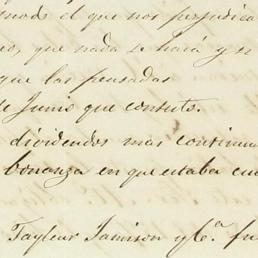 el que nos perjudica
que nada se hará y n
que las pensadas
de Junio que contesto.
dividendos mas continu
bonanza en que estaba cu
Tayleur Jamison y Cª. fu